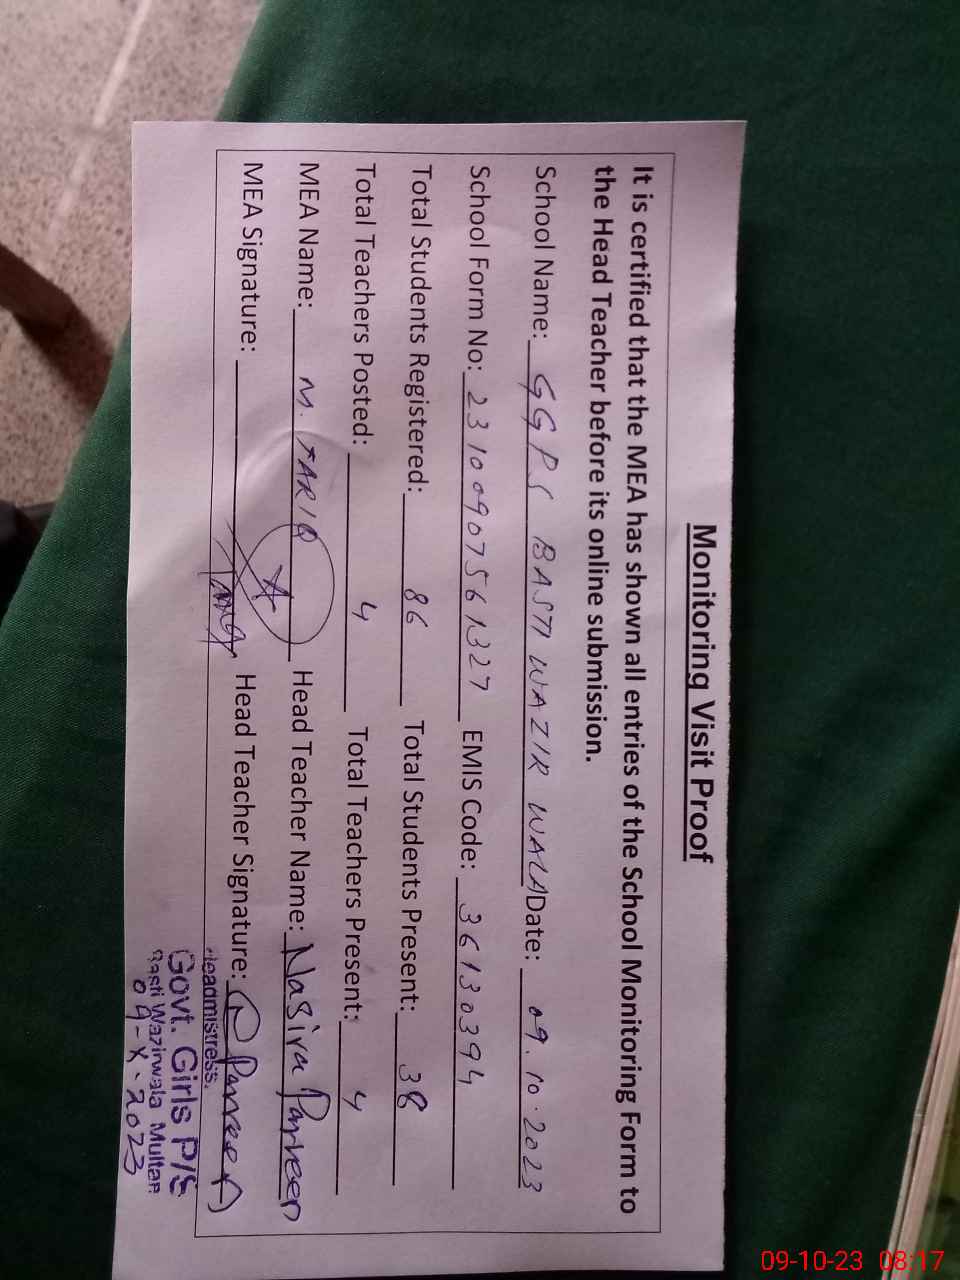 Monitoring Visit Proof
It is certified that the MEA has shown all entries of the School Monitoring Form to
the Head Teacher before its online submission.
School Name: GGPS BASTI WAZIR WALA Date: 09.10.2023
School Form No: 23100907561327 EMIS Code: 36130394
Total Students Registered: 86 Total Students Present: 38
Total Teachers Posted: 4 Total Teachers Present: 4
MEA Name: M. TARIQ Head Teacher Name: Nasira Parveen
MEA Signature: Head Teacher Signature: Parveen
Headmistress.
Govt. Girls P/S
Basti Wazirwala Multan
09-X-2023
09-10-23 08:17